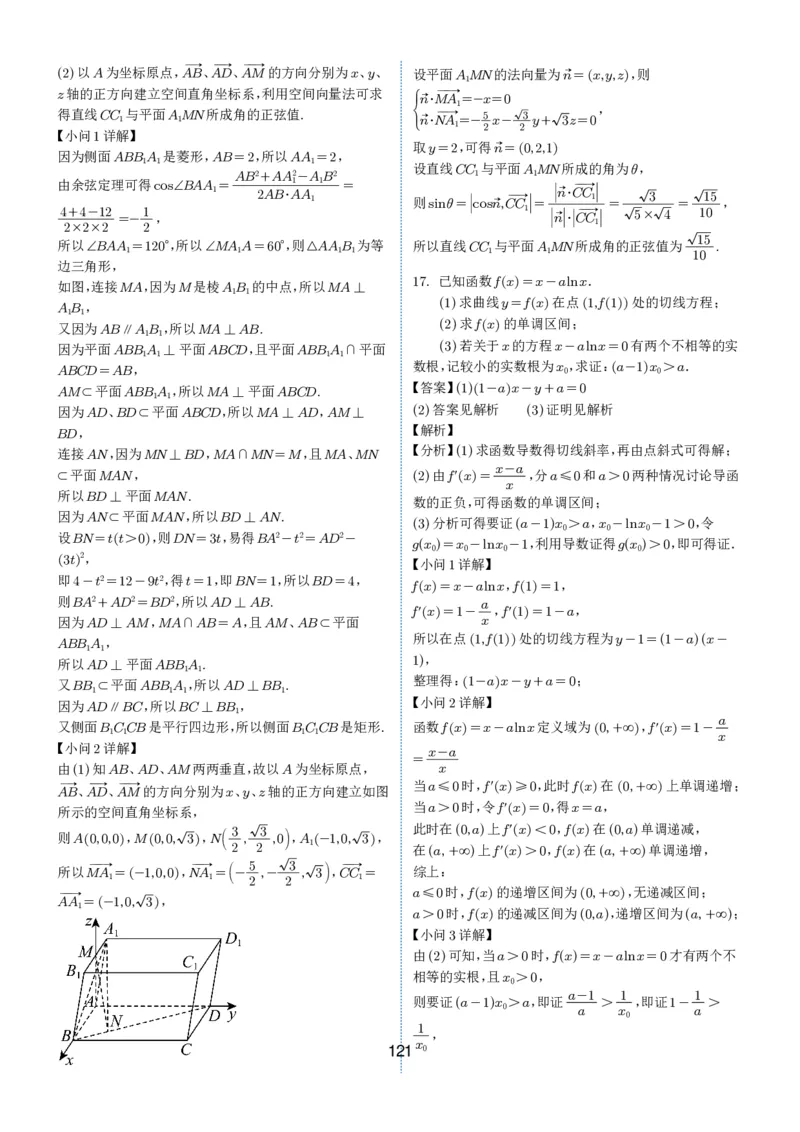 (2)以A为坐标原点,AB、AD、AM的方向分别为x、y、
z轴的正方向建立空间直角坐标系,利用空间向量法可求
得直线CC₁与平面A₁MN所成角的正弦值.
【小问1详解】
因为侧面ABB₁A₁是菱形,AB=2,所以AA₁=2,
由余弦定理可得cos∠BAA₁=(AB²+AA₁²-A₁B²)/(2AB·AA₁)=
(4+4-12)/(2×2×2)=-1/2,
所以∠BAA₁=120°,所以∠MA₁A=60°,则△AA₁B₁为等
边三角形,
如图,连接MA,因为M是棱A₁B₁的中点,所以MA⊥
A₁B₁,
又因为AB∥A₁B₁,所以MA⊥AB.
因为平面ABB₁A₁⊥平面ABCD,且平面ABB₁A₁∩平面
ABCD=AB,
AM⊂平面ABB₁A₁,所以MA⊥平面ABCD.
因为AD、BD⊂平面ABCD,所以MA⊥AD,AM⊥
BD,
连接AN,因为MN⊥BD,MA∩MN=M,且MA、MN
⊂平面MAN,
所以BD⊥平面MAN.
因为AN⊂平面MAN,所以BD⊥AN.
设BN=t(t>0),则DN=3t,易得BA²-t²=AD²-
(3t)²,
即4-t²=12-9t²,得t=1,即BN=1,所以BD=4,
则BA²+AD²=BD²,所以AD⊥AB.
因为AD⊥AM,MA∩AB=A,且AM、AB⊂平面
ABB₁A₁,
所以AD⊥平面ABB₁A₁.
又BB₁⊂平面ABB₁A₁,所以AD⊥BB₁.
因为AD∥BC,所以BC⊥BB₁,
又侧面B₁C₁CB是平行四边形,所以侧面B₁C₁CB是矩形.
【小问2详解】
由(1)知AB、AD、AM两两垂直,故以A为坐标原点,
AB、AD、AM的方向分别为x、y、z轴的正方向建立如图
所示的空间直角坐标系,
则A(0,0,0),M(0,0,√3),N(3/2,√3/2,0),A₁(-1,0,√3),
所以MA₁=(-1,0,0),NA₁=(-5/2,-√3/2,√3),CC₁=
AA₁=(-1,0,√3),
z
A₁
D₁
M
C₁
B₁
A
D
y
N
B
C
x
设平面A₁MN的法向量为n⃗=(x,y,z),则
{n⃗·MA₁=-x=0
n⃗·NA₁=-5/2x-√3/2y+√3z=0,
取y=2,可得n⃗=(0,2,1)
设直线CC₁与平面A₁MN所成的角为θ,
则sinθ=|cosn⃗,CC₁|=|n⃗·CC₁|/(|n⃗|·|CC₁|)=√3/(√5×√4)=√15/10,
所以直线CC₁与平面A₁MN所成角的正弦值为√15/10.
17. 已知函数f(x)=x-alnx.
(1)求曲线y=f(x)在点(1,f(1))处的切线方程;
(2)求f(x)的单调区间;
(3)若关于x的方程x-alnx=0有两个不相等的实
数根,记较小的实数根为x₀,求证:(a-1)x₀>a.
【答案】(1)(1-a)x-y+a=0
(2)答案见解析 (3)证明见解析
【解析】
【分析】(1)求函数导数得切线斜率,再由点斜式可得解;
(2)由f′(x)=(x-a)/x,分a⩽0和a>0两种情况讨论导函
数的正负,可得函数的单调区间;
(3)分析可得要证(a-1)x₀>a,x₀-lnx₀-1>0,令
g(x₀)=x₀-lnx₀-1,利用导数证得g(x₀)>0,即可得证.
【小问1详解】
f(x)=x-alnx,f(1)=1,
f′(x)=1-a/x,f′(1)=1-a,
所以在点(1,f(1))处的切线方程为y-1=(1-a)(x-
1),
整理得:(1-a)x-y+a=0;
【小问2详解】
函数f(x)=x-alnx定义域为(0,+∞),f′(x)=1-a/x
=(x-a)/x
当a⩽0时,f′(x)⩾0,此时f(x)在(0,+∞)上单调递增;
当a>0时,令f′(x)=0,得x=a,
此时在(0,a)上f′(x)<0,f(x)在(0,a)单调递减,
在(a,+∞)上f′(x)>0,f(x)在(a,+∞)单调递增,
综上:
a⩽0时,f(x)的递增区间为(0,+∞),无递减区间;
a>0时,f(x)的递减区间为(0,a),递增区间为(a,+∞);
【小问3详解】
由(2)可知,当a>0时,f(x)=x-alnx=0才有两个不
相等的实根,且x₀>0,
则要证(a-1)x₀>a,即证(a-1)/a>1/x₀,即证1-1/a>
1/x₀,
121